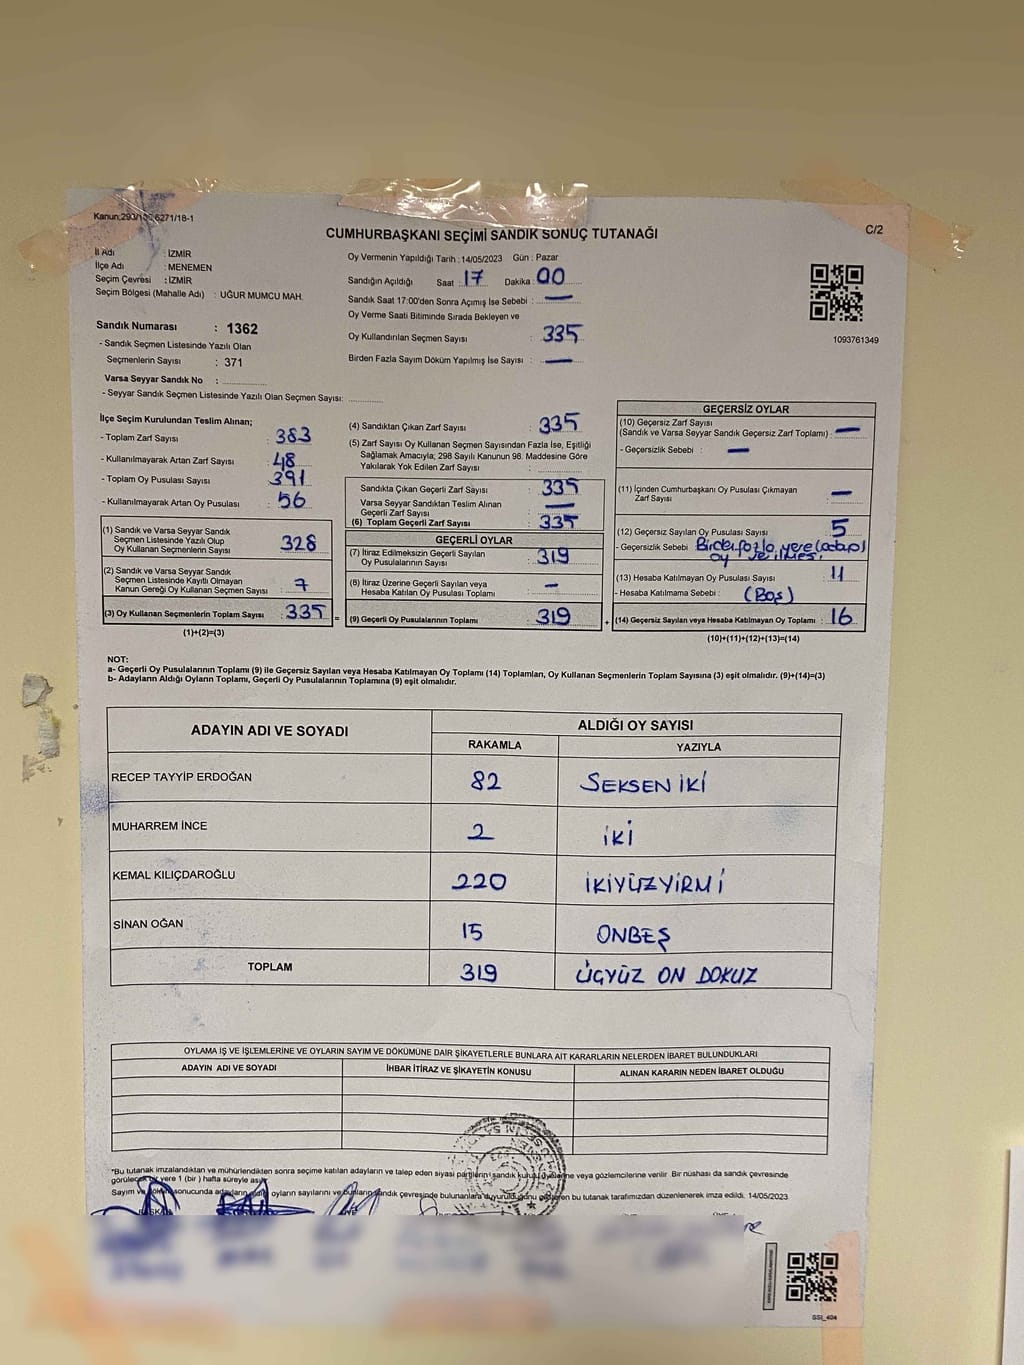 CUMHURBAŞKANI SEÇİMİ SANDIK SONUÇ TUTANAĞI
C/2
İl Adı : İZMİR
İlçe Adı : MENEMEN
Seçim Çevresi : İZMİR
Seçim Bölgesi (Mahalle Adı) : UĞUR MUMCU MAH.
Sandık Numarası : 1362
- Sandık Seçmen Listesinde Yazılı Olan
Seçmenlerin Sayısı : 371
Varsa Seyyar Sandık No :
- Seyyar Sandık Seçmen Listesinde Yazılı Olan Seçmen Sayısı:
Oy Vermenin Yapıldığı Tarih : 14/05/2023 Gün : Pazar
Sandığın Açıldığı Saat : 17 Dakika : 00
Sandık Saat 17:00'den Sonra Açımış İse Sebebi : —
Oy Verme Saati Bitiminde Sırada Bekleyen ve
Oy Kullandırılan Seçmen Sayısı : 335
Birden Fazla Sayım Döküm Yapılmış İse Sayısı : —
1093761349
İlçe Seçim Kurulundan Teslim Alınan;
- Toplam Zarf Sayısı : 383
- Kullanılmayarak Artan Zarf Sayısı : 48
- Toplam Oy Pusulası Sayısı : 391
- Kullanılmayarak Artan Oy Pusulası : 56
(1) Sandık ve Varsa Seyyar Sandık
Seçmen Listesinde Yazılı Olup
Oy Kullanan Seçmenlerin Sayısı : 328
(2) Sandık ve Varsa Seyyar Sandık
Seçmen Listesinde Kayıtlı Olmayan
Kanun Gereği Oy Kullanan Seçmen Sayısı : 7
(3) Oy Kullanan Seçmenlerin Toplam Sayısı : 335 =
(1)+(2)=(3)
(4) Sandıktan Çıkan Zarf Sayısı : 335
(5) Zarf Sayısı Oy Kullanan Seçmen Sayısından Fazla İse, Eşitliği
Sağlamak Amacıyla; 298 Sayılı Kanunun 98. Maddesine Göre
Yakılarak Yok Edilen Zarf Sayısı :
Sandıkta Çıkan Geçerli Zarf Sayısı : 335
Varsa Seyyar Sandıktan Teslim Alınan
Geçerli Zarf Sayısı : —
(6) Toplam Geçerli Zarf Sayısı : 335
GEÇERLİ OYLAR
(7) İtiraz Edilmeksizin Geçerli Sayılan
Oy Pusulalarının Sayısı : 319
(8) İtiraz Üzerine Geçerli Sayılan veya
Hesaba Katılan Oy Pusulası Toplamı : —
(9) Geçerli Oy Pusulalarının Toplamı : 319 +
GEÇERSİZ OYLAR
(10) Geçersiz Zarf Sayısı
(Sandık ve Varsa Seyyar Sandık Geçersiz Zarf Toplamı) : —
- Geçersizlik Sebebi : —
(11) İçinden Cumhurbaşkanı Oy Pusulası Çıkmayan
Zarf Sayısı : —
(12) Geçersiz Sayılan Oy Pusulası Sayısı : 5
- Geçersizlik Sebebi : Birden fazla yere
oy
(13) Hesaba Katılmayan Oy Pusulası Sayısı : 11
- Hesaba Katılmama Sebebi : (Boş)
(14) Geçersiz Sayılan veya Hesaba Katılmayan Oy Toplamı : 16
(10)+(11)+(12)+(13)=(14)
NOT:
a- Geçerli Oy Pusulalarının Toplamı (9) ile Geçersiz Sayılan veya Hesaba Katılmayan Oy Toplamı (14) Toplamları, Oy Kullanan Seçmenlerin Toplam Sayısına (3) eşit olmalıdır. (9)+(14)=(3)
b- Adayların Aldığı Oyların Toplamı, Geçerli Oy Pusulalarının Toplamına (9) eşit olmalıdır.
ADAYIN ADI VE SOYADI ALDIĞI OY SAYISI
RAKAMLA YAZIYLA
RECEP TAYYİP ERDOĞAN 82 SEKSEN İKİ
MUHARREM İNCE 2 İKİ
KEMAL KILIÇDAROĞLU 220 İKİYÜZYİRMİ
SİNAN OĞAN 15 ONBEŞ
TOPLAM 319 ÜÇYÜZ ON DOKUZ
OYLAMA İŞ VE İŞLEMLERİNE VE OYLARIN SAYIM VE DÖKÜMÜNE DAİR ŞİKAYETLERLE BUNLARA AİT KARARLARIN NELERDEN İBARET BULUNDUKLARI
ADAYIN ADI VE SOYADI İHBAR İTİRAZ VE ŞİKAYETİN KONUSU ALINAN KARARIN NEDEN İBARET OLDUĞU
*Bu tutanak imzalandıktan ve mühürlendikten sonra seçime katılan adayların ve talep eden siyasi partilerin sandık kurulu üyelerine veya gözlemcilerine verilir. Bir nüshası da sandık çevresinde
görülecek bir yere 1 (bir ) hafta süreyle asılır.
Sayım ve sonucunda oyların sayılarını ve sandık çevresinde bulunanlara bu tutanak tarafımızdan düzenlenerek imza edildi. 14/05/2023
BAŞKAN
SSI_404